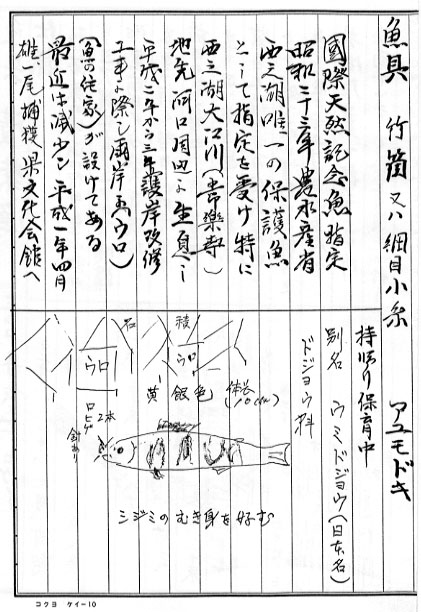 魚具 竹筒又ハ細目小糸 アユモドキ
持帰り保育中
別名 ウミドジョウ(日本名)
ドジョウ科
國際天然記念魚指定
昭和二十三年農水産省
西之湖唯一の保護魚
として指定を受け特に
西之湖大江川(常樂寺)
地先河口周辺に生息し
平成二年から三年護岸改修
工事に際し両岸にウロ)
(魚の住家)が設けてある
最近は減少シ平成一年四月
雄一尾捕獲県文化会館へ
石
稜
ウロ
ウロ
黄 銀色 (体长 10cm)
口ヒゲ 2本
針あり
シジミのむき身を好む
コクヨ ケイ-10